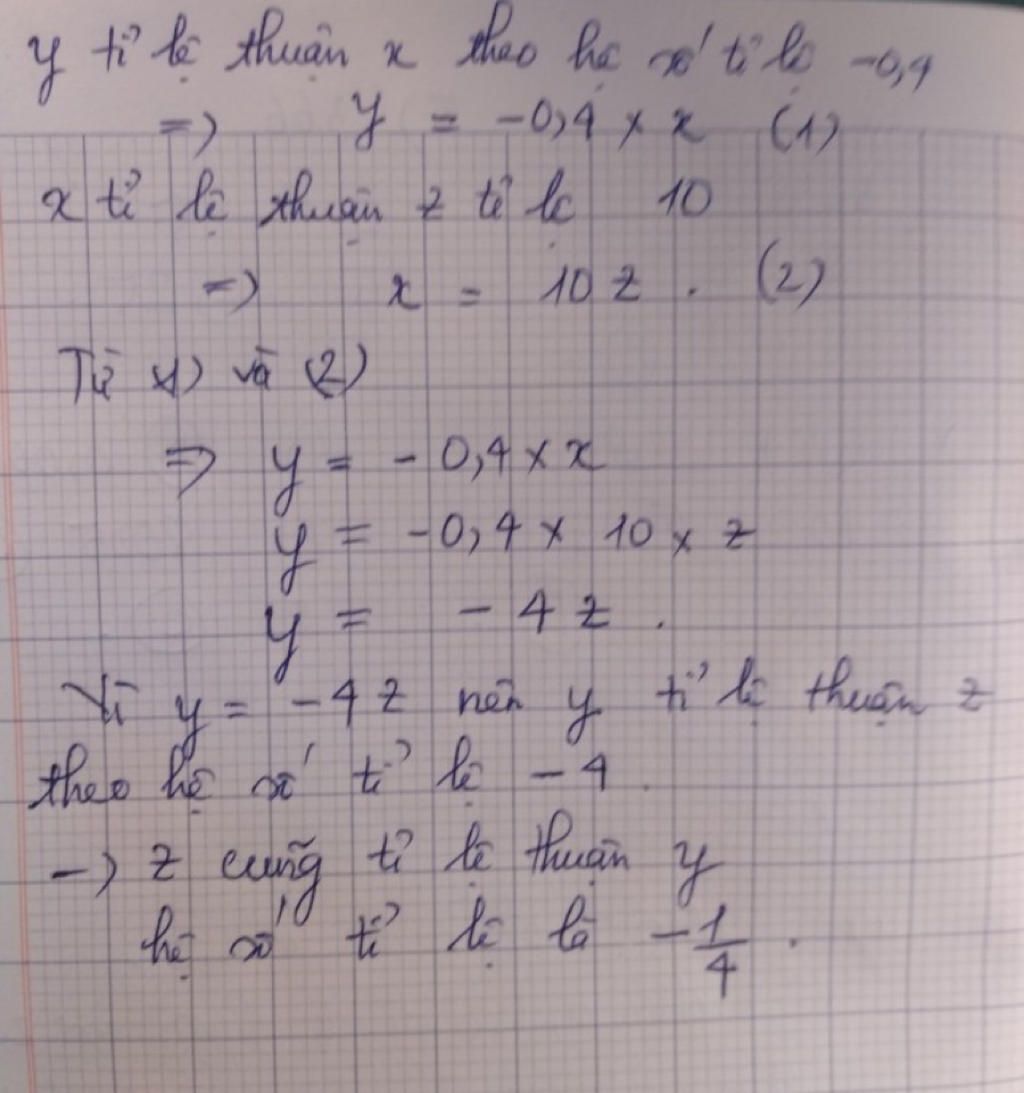 y tỉ lệ thuận x theo hệ số tỉ lệ -0,4
=> y = -0,4 × x (1)
x tỉ lệ thuận z tỉ lệ 10
=> x = 10 z . (2)
Từ (1) và (2)
=> y = - 0,4 × x
y = -0,4 × 10 × z
y = - 4 z .
Vì y = - 4 z nên y tỉ lệ thuận z
theo hệ số tỉ lệ - 4 .
-> z cũng tỉ lệ thuận y
hệ số tỉ lệ là -1/4 .